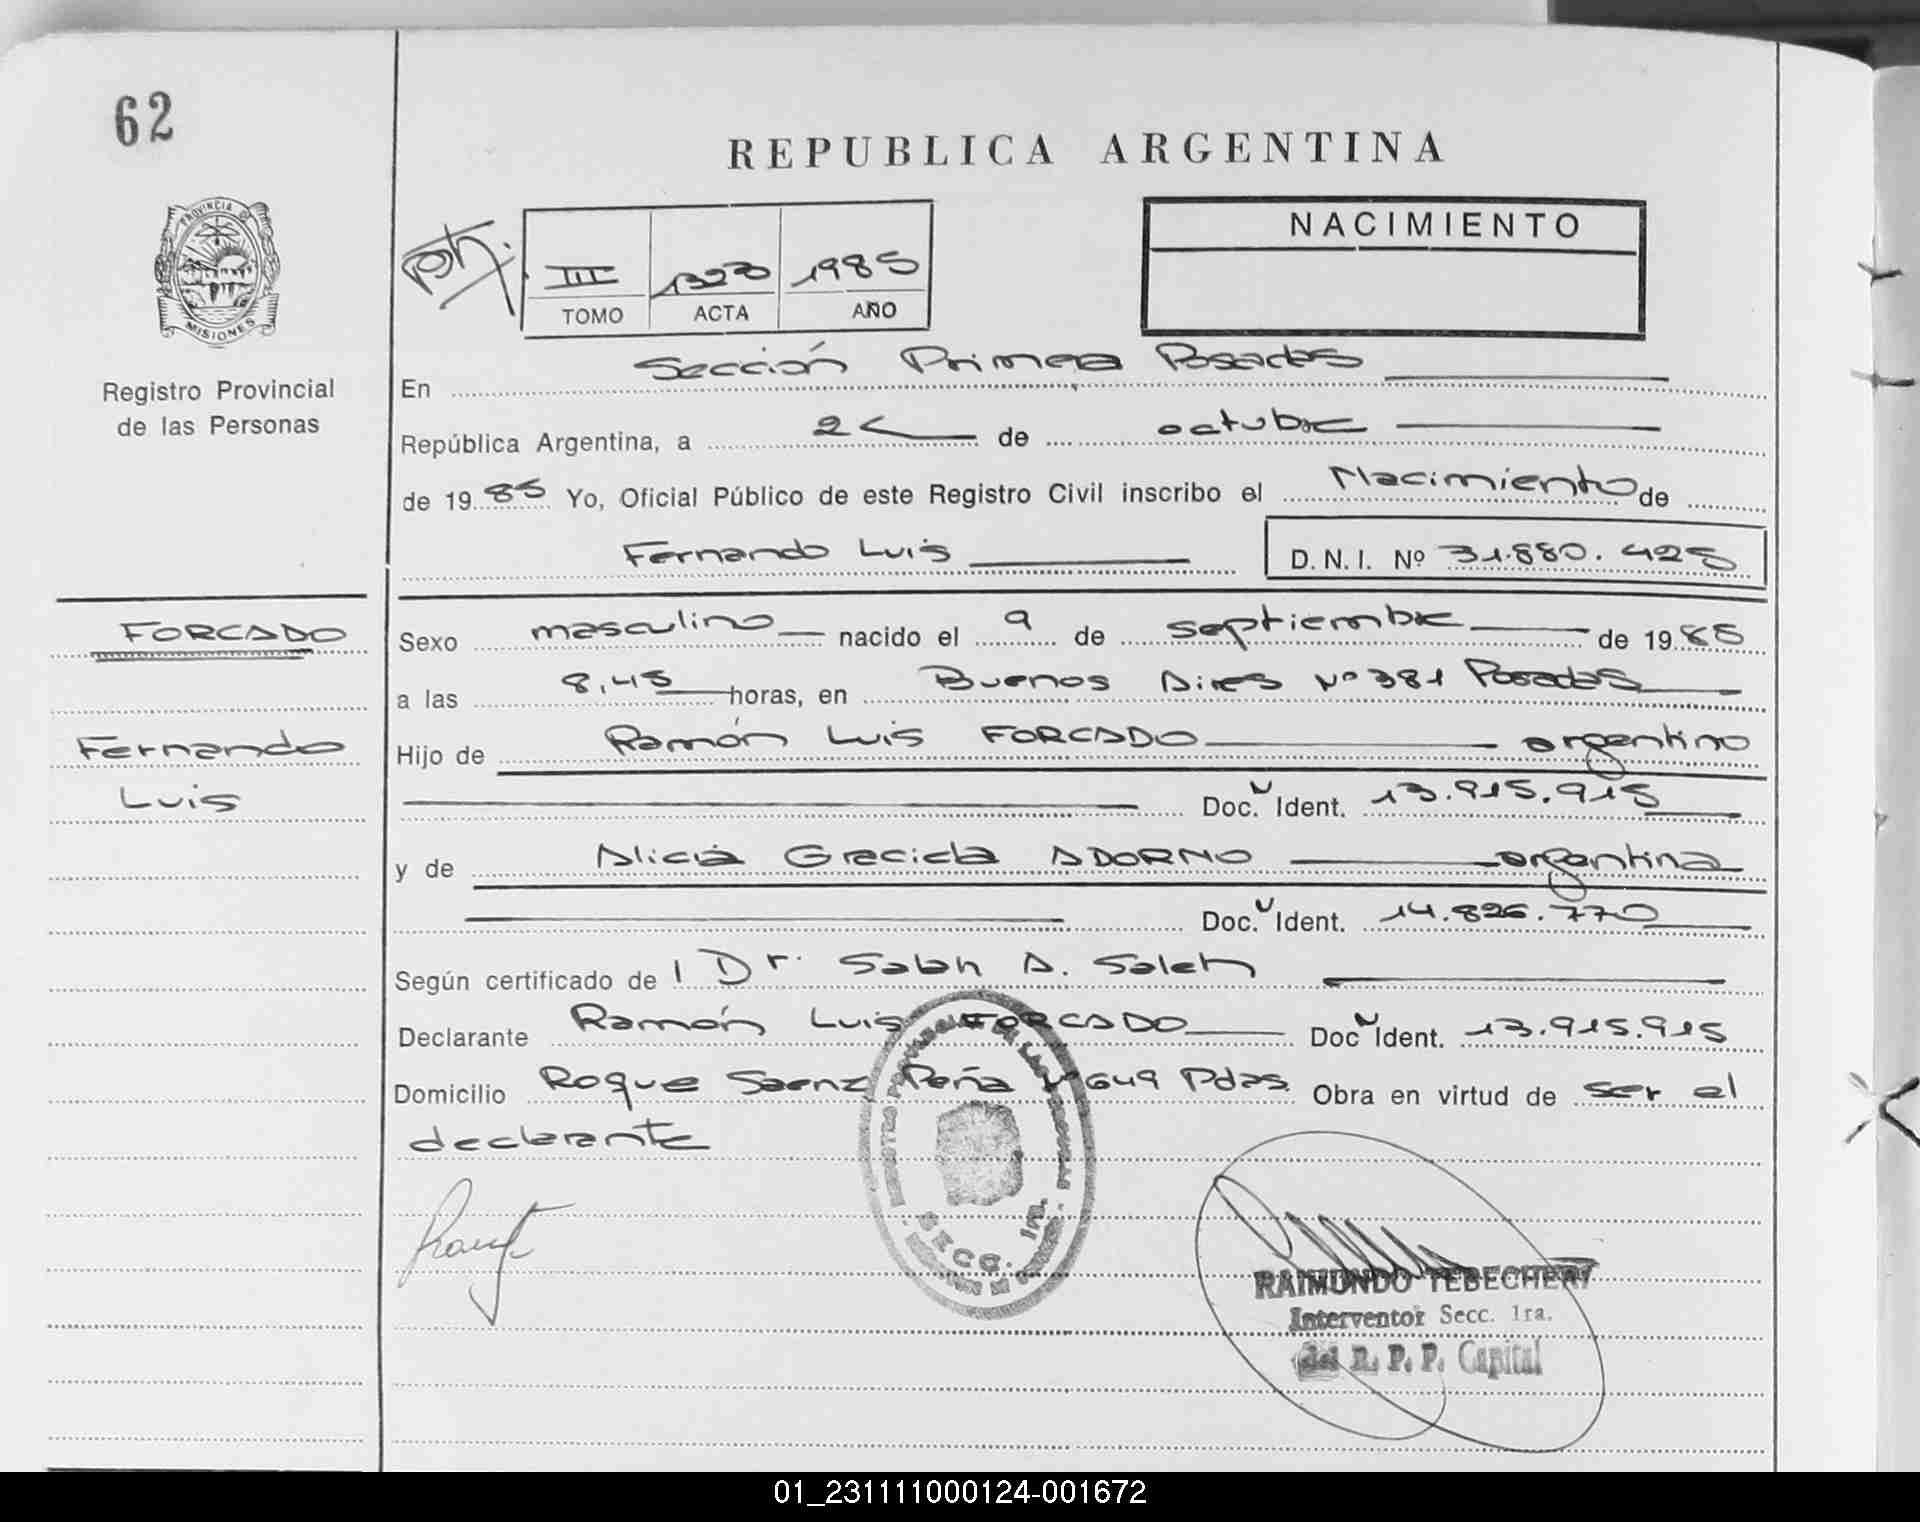 62
REPUBLICA ARGENTINA
PROVINCIA DE
MISIONES
Registro Provincial
de las Personas
NACIMIENTO
III 1323 1985
TOMO ACTA AÑO
En Sección Primera Posadas
República Argentina, a 2 de octubre
de 19 85 Yo, Oficial Público de este Registro Civil inscribo el Nacimiento de
Fernando Luis D.N.I. Nº 31.880.425
FORCADO
Fernando
Luis
Sexo masculino nacido el 9 de septiembre de 19 85
a las 8,45 horas, en Buenos Aires Nº 381 Posadas
Hijo de Ramón Luis FORCADO argentino
Doc. Ident. 13.915.915
y de Alicia Graciela ADORNO argentina
Doc. Ident. 14.826.770
Según certificado de l Dr. Salah A. Saleh
Declarante Ramón Luis FORCADO Doc. Ident. 13.915.915
Domicilio Roque Saenz Peña Nº 649 Pdas. Obra en virtud de ser el
declarante
SECC. 1ra.
RAIMUNDO TEBECHERY
Interventor Secc. 1ra.
del R. P. P. Capital
01_231111000124-001672